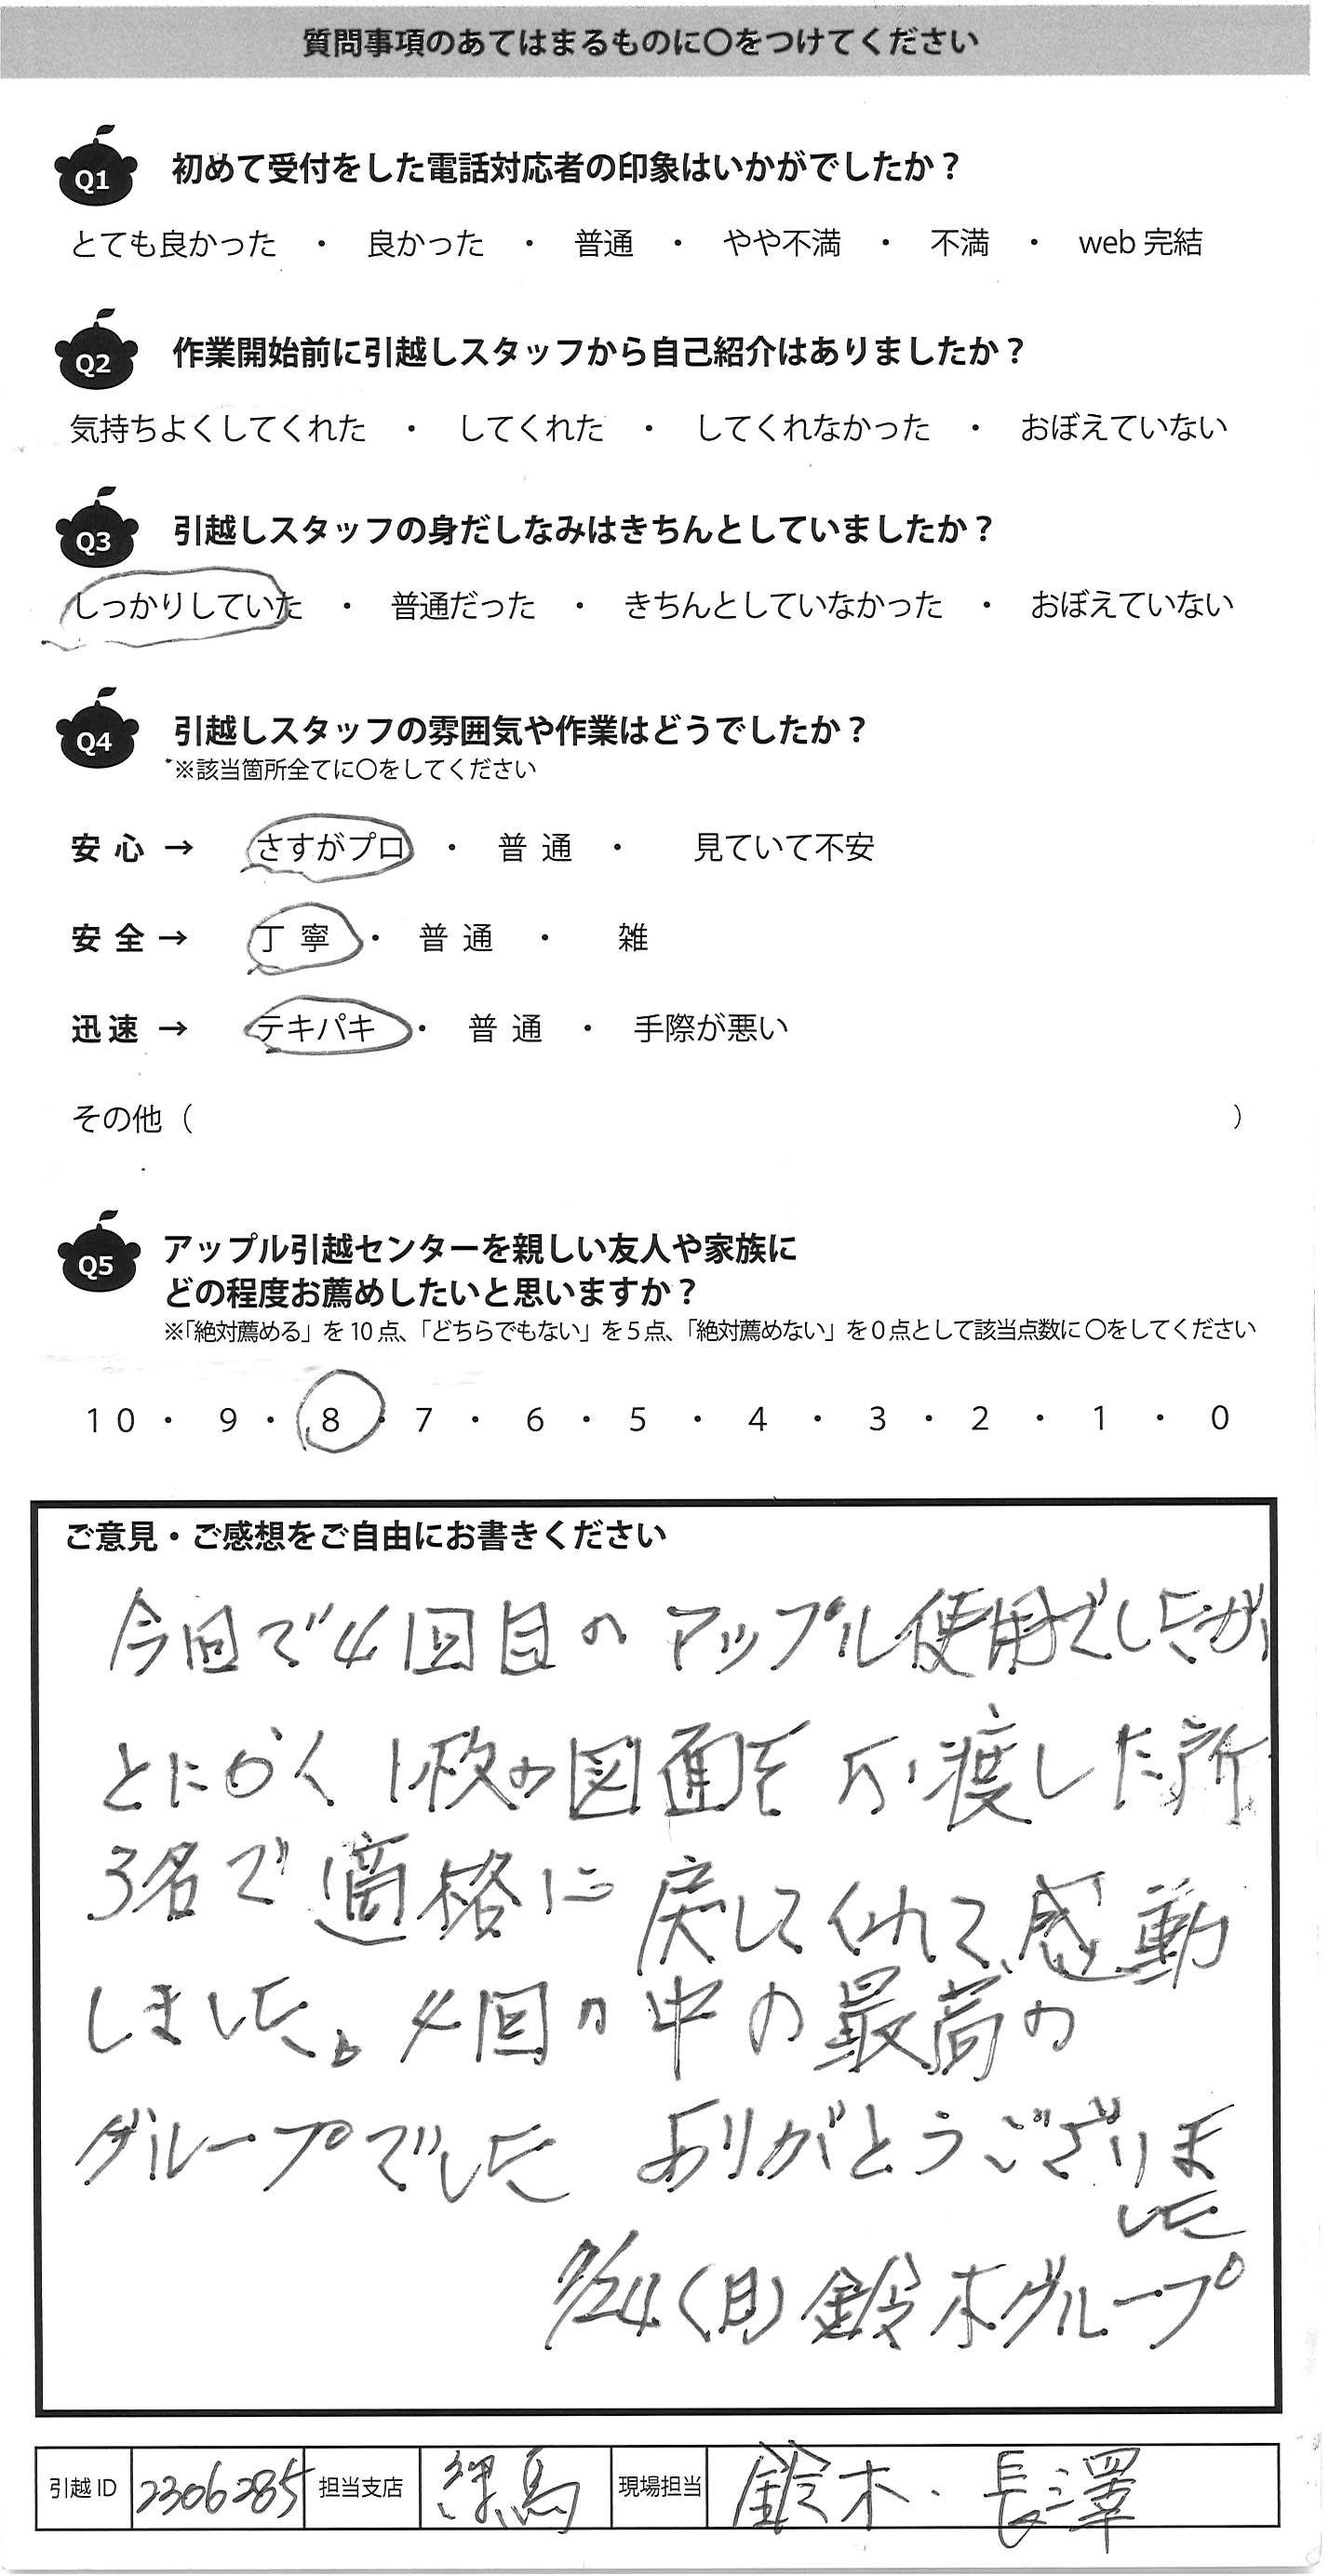 質問事項のあてはまるものに〇をつけてください
Q1 初めて受付をした電話対応者の印象はいかがでしたか？
とても良かった ・ 良かった ・ 普通 ・ やや不満 ・ 不満 ・ web 完結
Q2 作業開始前に引越しスタッフから自己紹介はありましたか？
気持ちよくしてくれた ・ してくれた ・ してくれなかった ・ おぼえていない
Q3 引越しスタッフの身だしなみはきちんとしていましたか？
しっかりしていた ・ 普通だった ・ きちんとしていなかった ・ おぼえていない
Q4 引越しスタッフの雰囲気や作業はどうでしたか？
※該当箇所全てに〇をしてください
安心 → さすがプロ ・ 普通 ・ 見ていて不安
安全 → 丁寧 ・ 普通 ・ 雑
迅速 → テキパキ ・ 普通 ・ 手際が悪い
その他（ ）
Q5 アップル引越センターを親しい友人や家族に
どの程度お薦めしたいと思いますか？
※「絶対薦める」を10点、「どちらでもない」を5点、「絶対薦めない」を0点として該当点数に〇をしてください
10 ・ 9 ・ 8 ・ 7 ・ 6 ・ 5 ・ 4 ・ 3 ・ 2 ・ 1 ・ 0
ご意見・ご感想をご自由にお書きください
今回で4回目のアップル使用でしたが
とにかく1枚の図面をお渡しした所
3名で適格に戻してくれて、感動
しました。4回の中の最高の
グループでした ありがとうございま
した
9/24(日)鈴木グループ
引越ID 2306285 担当支店 練馬 現場担当 鈴木・長澤